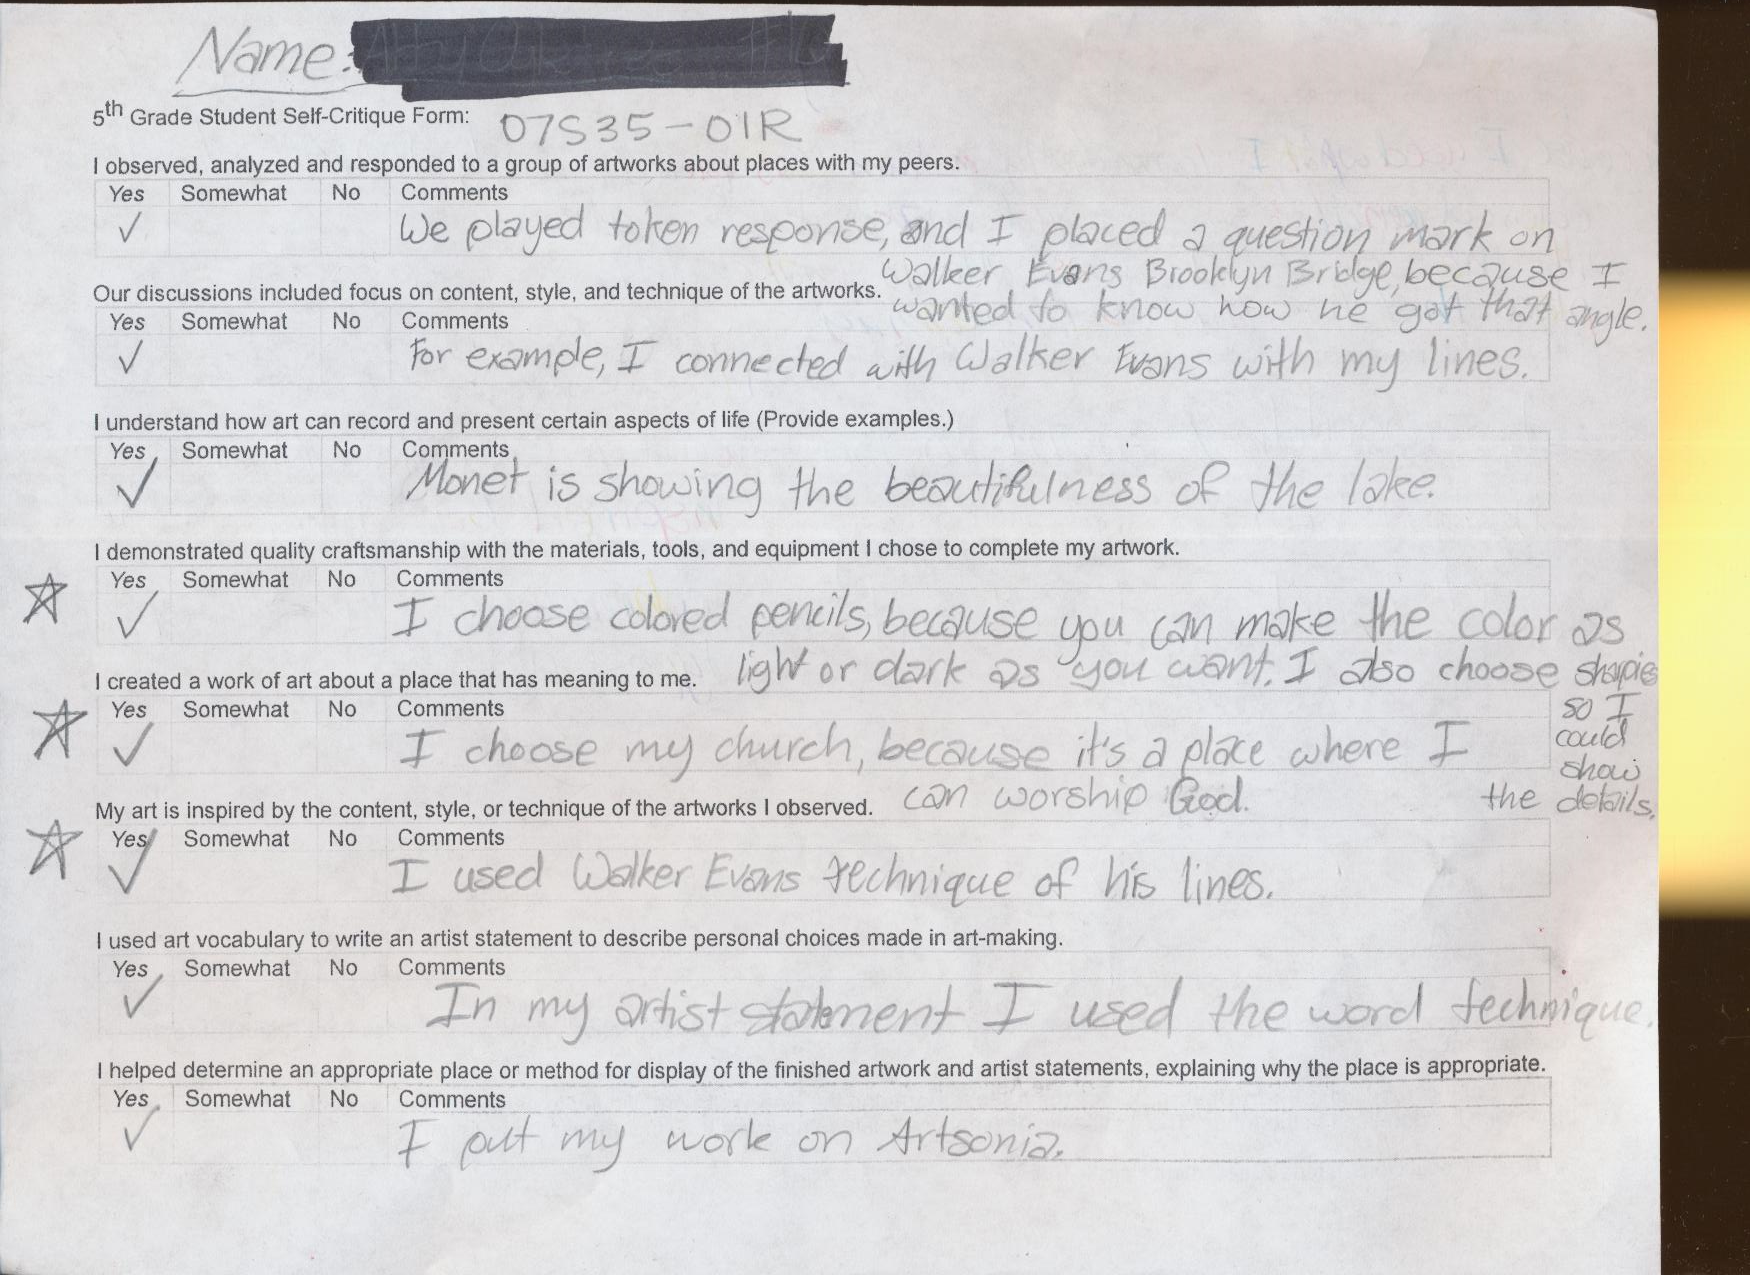 Name:
5th Grade Student Self-Critique Form: 07S35-01R
I observed, analyzed and responded to a group of artworks about places with my peers.
Yes Somewhat No Comments
✓ We played token response, and I placed a question mark on
Walker Evans Brooklyn Bridge, because I
wanted to know how he got that angle.
Our discussions included focus on content, style, and technique of the artworks.
Yes Somewhat No Comments
✓ For example, I connected with Walker Evans with my lines.
I understand how art can record and present certain aspects of life (Provide examples.)
Yes Somewhat No Comments
✓ Monet is showing the beautifulness of the lake.
I demonstrated quality craftsmanship with the materials, tools, and equipment I chose to complete my artwork.
Yes Somewhat No Comments
✓ I choose colored pencils, because you can make the color as
light or dark as you want. I also choose sharpies
so I
could
show
the details.
I created a work of art about a place that has meaning to me.
Yes Somewhat No Comments
✓ I choose my church, because it's a place where I
can worship God.
My art is inspired by the content, style, or technique of the artworks I observed.
Yes Somewhat No Comments
✓ I used Walker Evans technique of his lines.
I used art vocabulary to write an artist statement to describe personal choices made in art-making.
Yes Somewhat No Comments
✓ In my artist statement I used the word technique.
I helped determine an appropriate place or method for display of the finished artwork and artist statements, explaining why the place is appropriate.
Yes Somewhat No Comments
✓ I put my work on Artsonia.